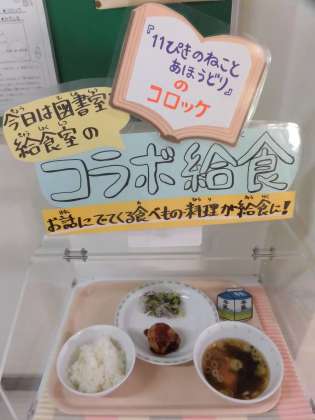 『11ぴきのねこと
あほうどり』
の
コロッケ
今日は図書室
給食室の
コラボ給食
お話にでてくる食べもの料理が給食に!